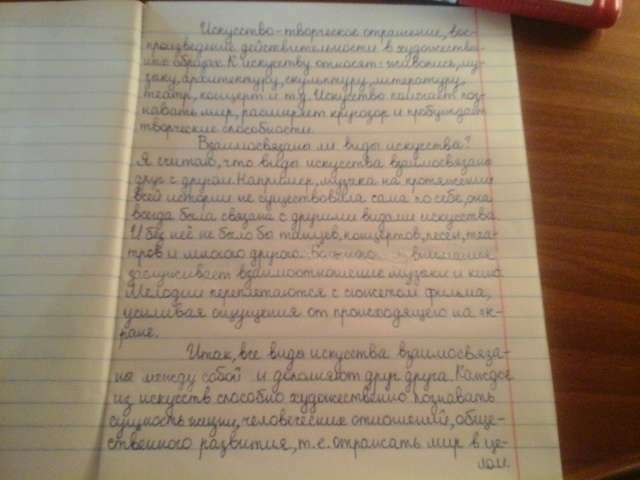 Искусство - творческое отражение, вос-
произведение действительности в художествен-
ных образах. К искусству относят: живопись, му-
зыку, архитектуру, скульптуру, литературу,
театр, концерт и т.д. Искусство помогает поз-
навать мир, расширяет кругозор и пробуждает
творческие способности.
Взаимосвязаны ли виды искусства?
Я считаю, что виды искусства взаимосвязаны
друг с другом. Например, музыка на протяжении
всей истории не существовала сама по себе, она
всегда была связана с другими видами искусства.
И без неё не было бы танцев, концертов, песен, теа-
тров и многого другого. внимания
заслуживает взаимоотношение музыки и кино.
Мелодии переплетаются с сюжетом фильма,
усиливая ощущения от происходящего на эк-
ране.
Итак, все виды искусства взаимосвяза-
ны между собой и дополняют друг друга. Каждое
из искусств способно художественно познавать
сущность жизни, человеческих отношений, обще-
ственного развития, т.е. отражать мир в це-
лом.